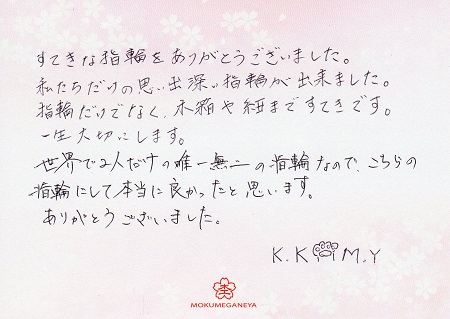 すてきな指輪をありがとうございました。
私たちだけの思い出深い指輪が出来ました。
指輪だけでなく、木箱や紐まですてきです。
一生大切にします。
世界で2人だけの唯一無二の指輪なので、こちらの
指輪にして本当に良かったと思います。
ありがとうございました。
K.K M.Y
MOKUMEGANEYA